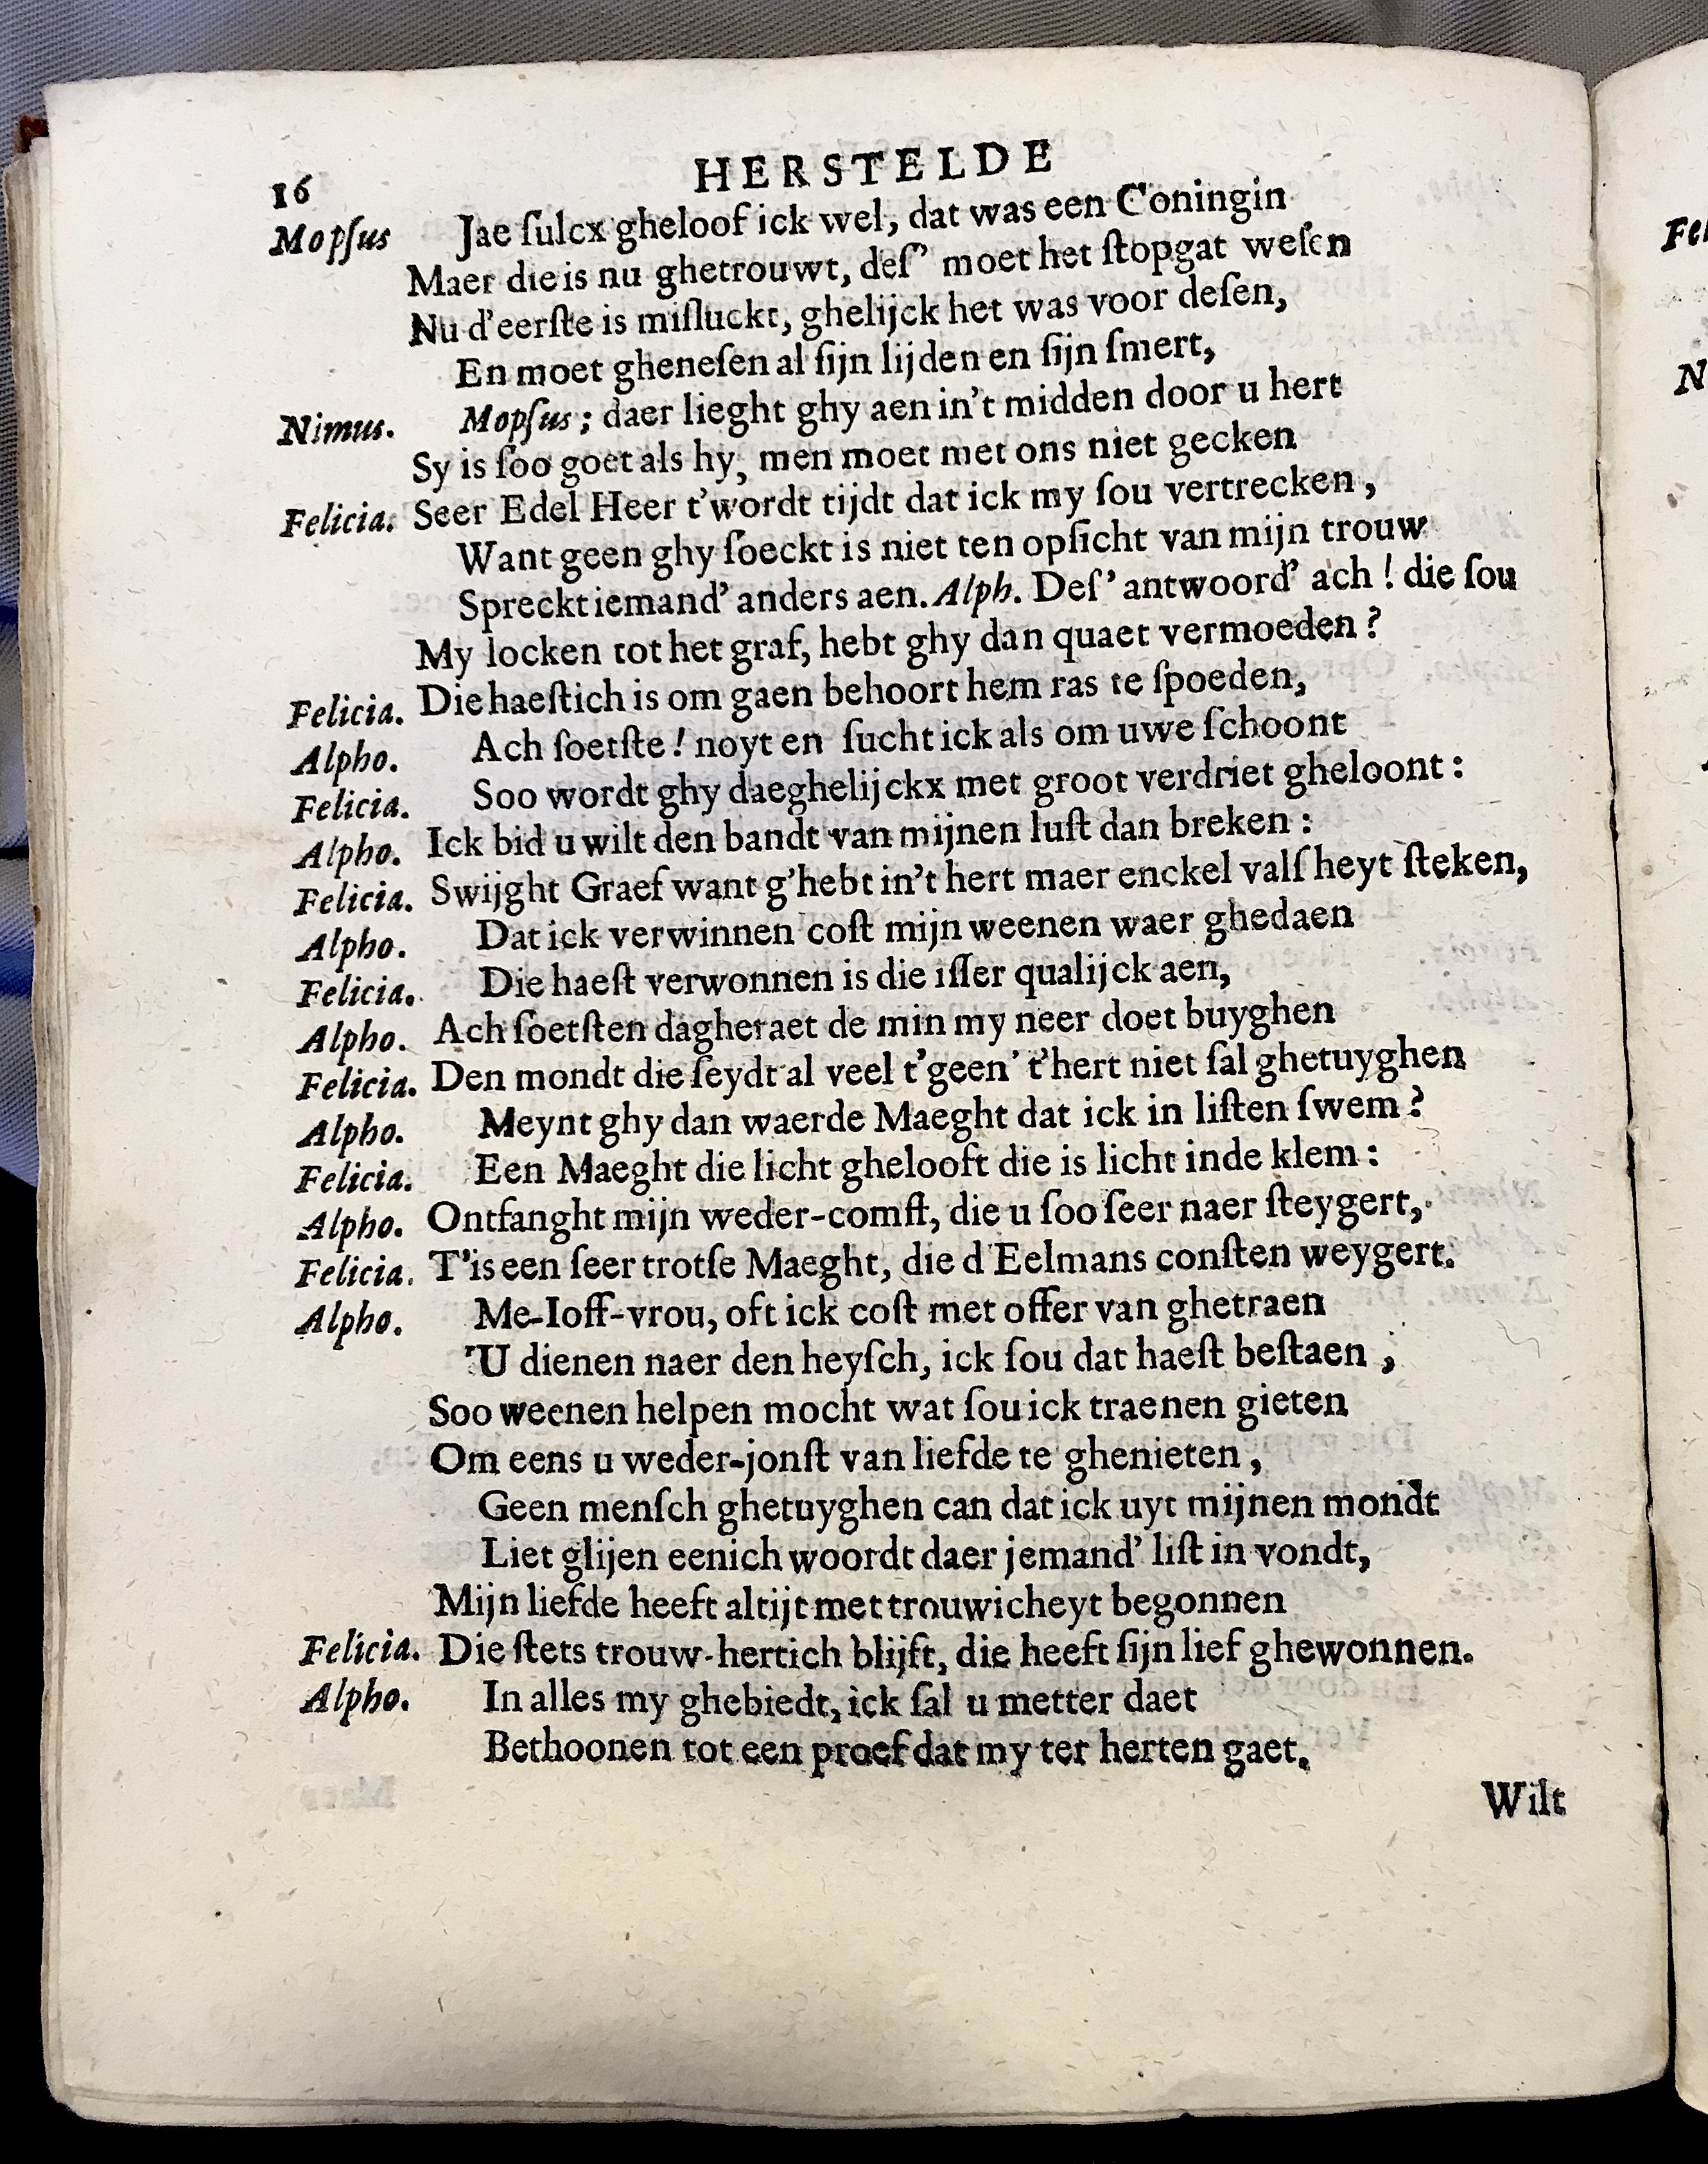 16 HERSTELDE
Mopſus Jae ſulcx gheloof ick wel, dat was een Coningin
Maer die is nu ghetrouwt, deſ' moet het ſtopgat weſen
Nu d'eerſte is miſluckt, ghelijck het was voor deſen,
En moet gheneſen al ſijn lijden en ſijn ſmert,
Nimus. Mopſus; daer lieght ghy aen in't midden door u hert
Sy is ſoo goet als hy, men moet met ons niet gecken
Felicia. Seer Edel Heer t'wordt tijdt dat ick my ſou vertrecken,
Want geen ghy ſoeckt is niet ten opſicht van mijn trouw
Spreckt iemand' anders aen. Alph. Deſ' antwoord' ach! die ſou
My locken tot het graf, hebt ghy dan quaet vermoeden?
Felicia. Die haeſtich is om gaen behoort hem ras te ſpoeden,
Alpho. Ach ſoetſte! noyt en ſucht ick als om uwe ſchoont
Felicia. Soo wordt ghy daeghelijckx met groot verdriet gheloont:
Alpho. Ick bid u wilt den bandt van mijnen luſt dan breken:
Felicia. Swijght Graef want g'hebt in't hert maer enckel valſheyt ſteken,
Alpho. Dat ick verwinnen coſt mijn weenen waer ghedaen
Felicia. Die haeſt verwonnen is die iſſer qualijck aen,
Alpho. Ach ſoetſten dagheraet de min my neer doet buyghen
Felicia. Den mondt die ſeydt al veel t'geen' t'hert niet ſal ghetuyghen
Alpho. Meynt ghy dan waerde Maeght dat ick in liſten ſwem?
Felicia. Een Maeght die licht ghelooft die is licht inde klem:
Alpho. Ontfanght mijn weder-comſt, die u ſoo ſeer naer ſteygert,
Felicia. T'is een ſeer trotſe Maeght, die d'Eelmans conſten weygert.
Alpho. Me-Ioff-vrou, oft ick coſt met offer van ghetraen
'U dienen naer den heyſch, ick ſou dat haeſt beſtaen,
Soo weenen helpen mocht wat ſou ick traenen gieten
Om eens u weder-jonſt van liefde te ghenieten,
Geen menſch ghetuyghen can dat ick uyt mijnen mondt
Liet glijen eenich woordt daer jemand' liſt in vondt,
Mijn liefde heeft altijt met trouwicheyt begonnen
Felicia. Die ſtets trouw-hertich blijft, die heeft ſijn lief ghewonnen.
Alpho. In alles my ghebiedt, ick ſal u metter daet
Bethoonen tot een proef dat my ter herten gaet.
Wilt